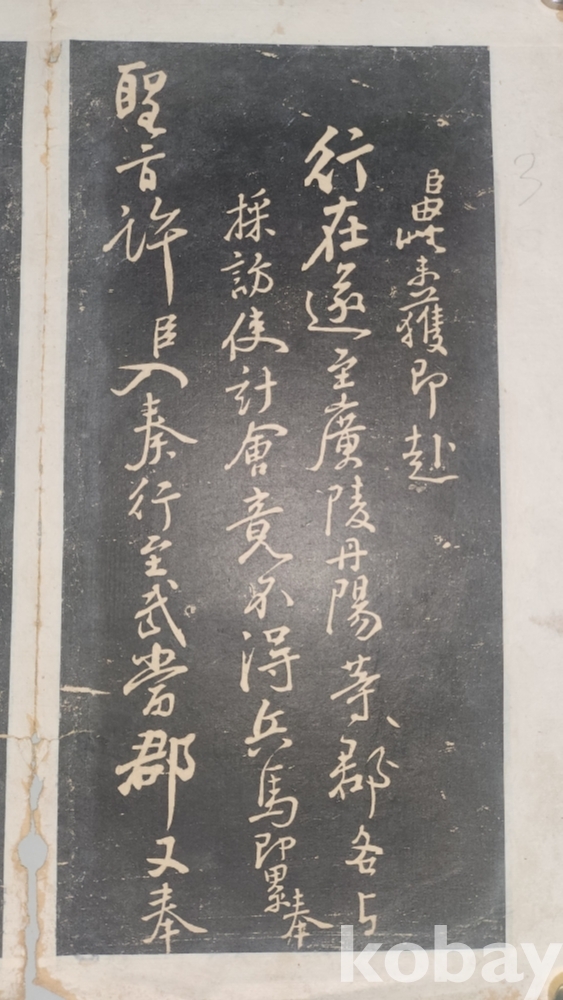 臣由此未獲即赴
行在遂至廣陵丹陽等郡各與
採訪使計會竟不得兵馬即累奉
聖旨許臣入秦行至武當郡又奉
3
kobay